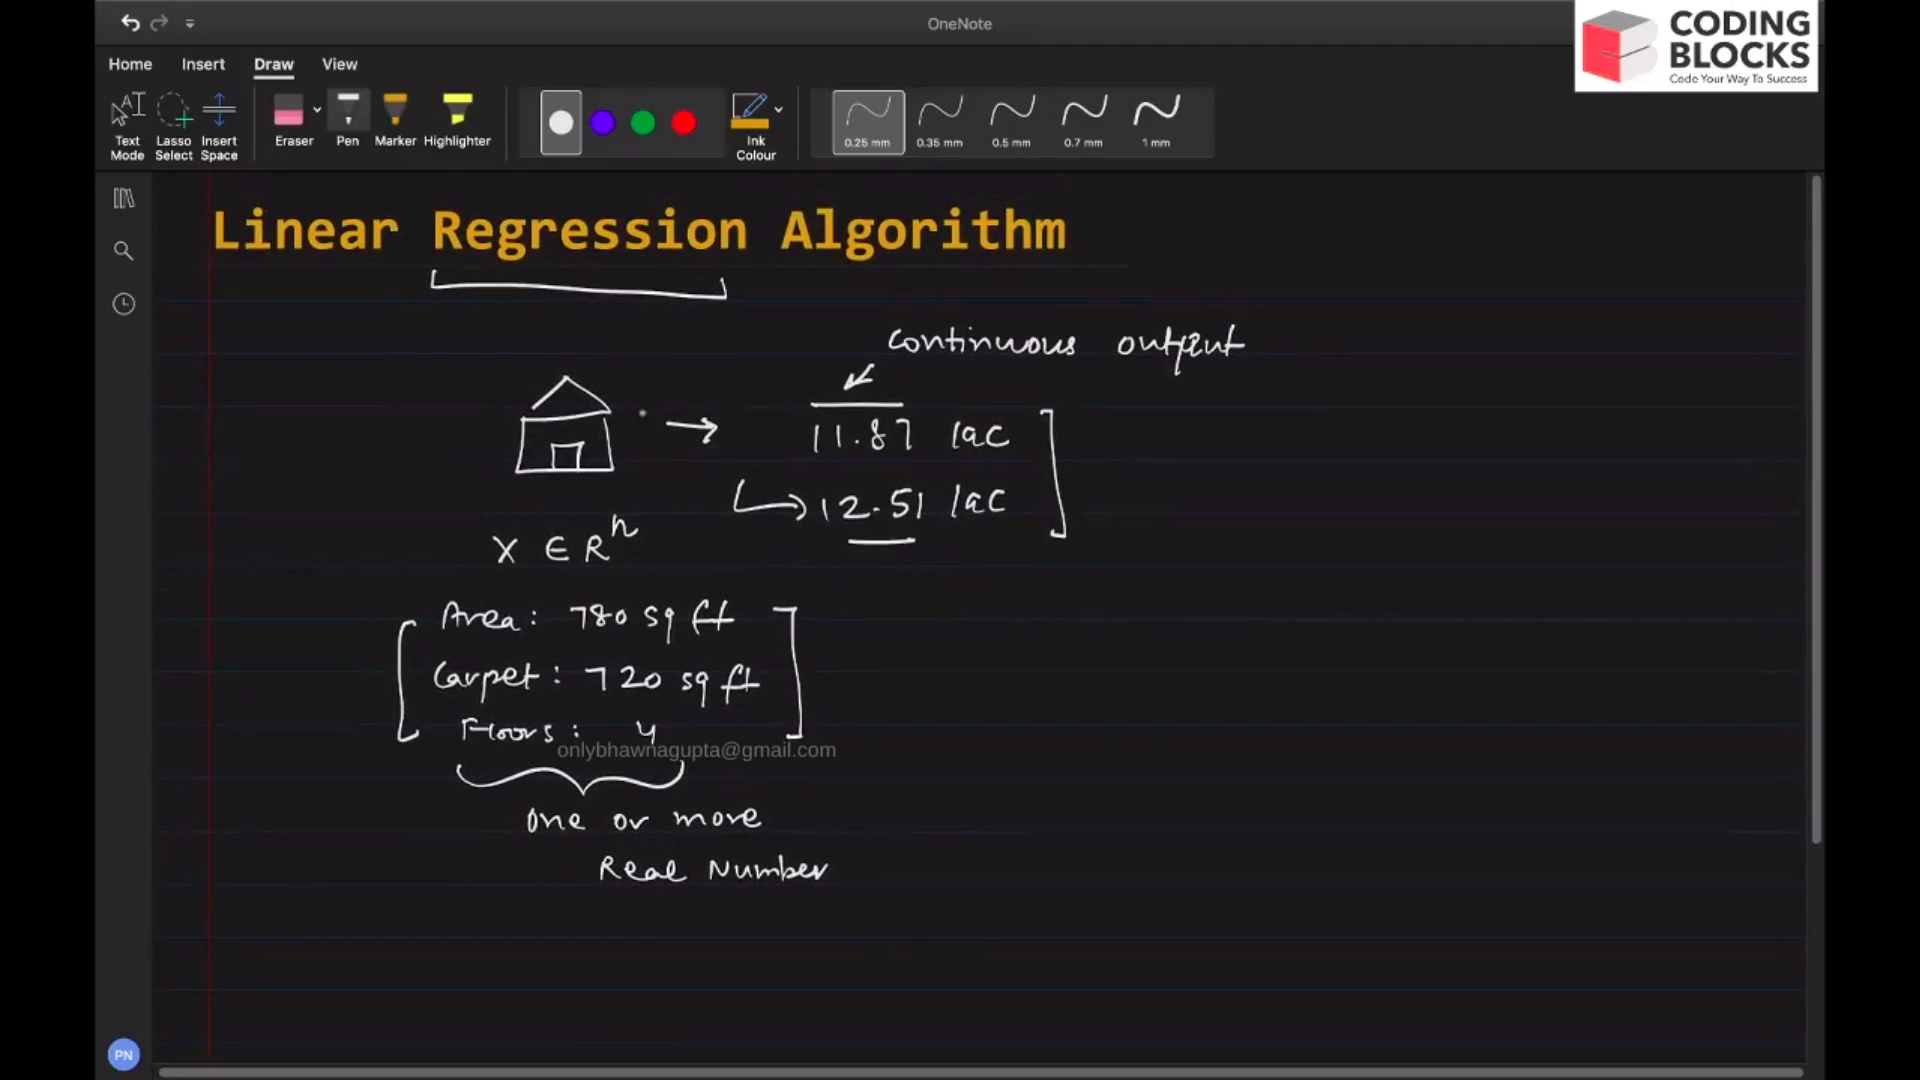 OneNote
CODING
BLOCKS
Code Your Way To Success
Home Insert Draw View
Text Mode
Lasso Select
Insert Space
Eraser
Pen
Marker
Highlighter
Ink Colour
0.25 mm
0.35 mm
0.5 mm
0.7 mm
1 mm
Linear Regression Algorithm
Continuous output
11.87 lac
12.51 lac
X ∈ Rⁿ
Area: 780 sq ft
Carpet: 720 sq ft
Floors: 4
onlybhawnagupta@gmail.com
One or more
Real Number
PN